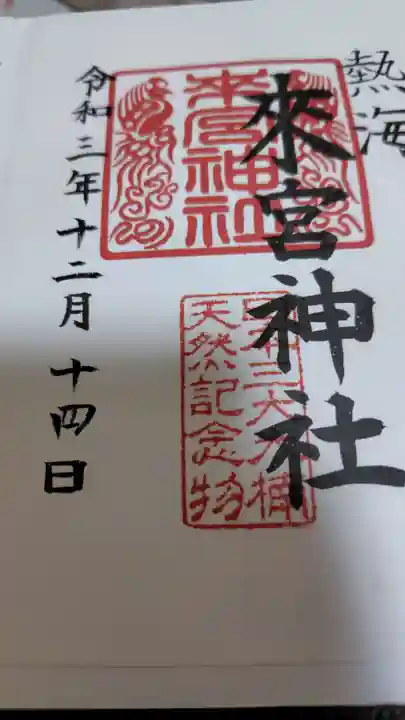 熱海
來宮神社
來宮神社
日本三大大楠
天然記念物
令和三年十二月十四日